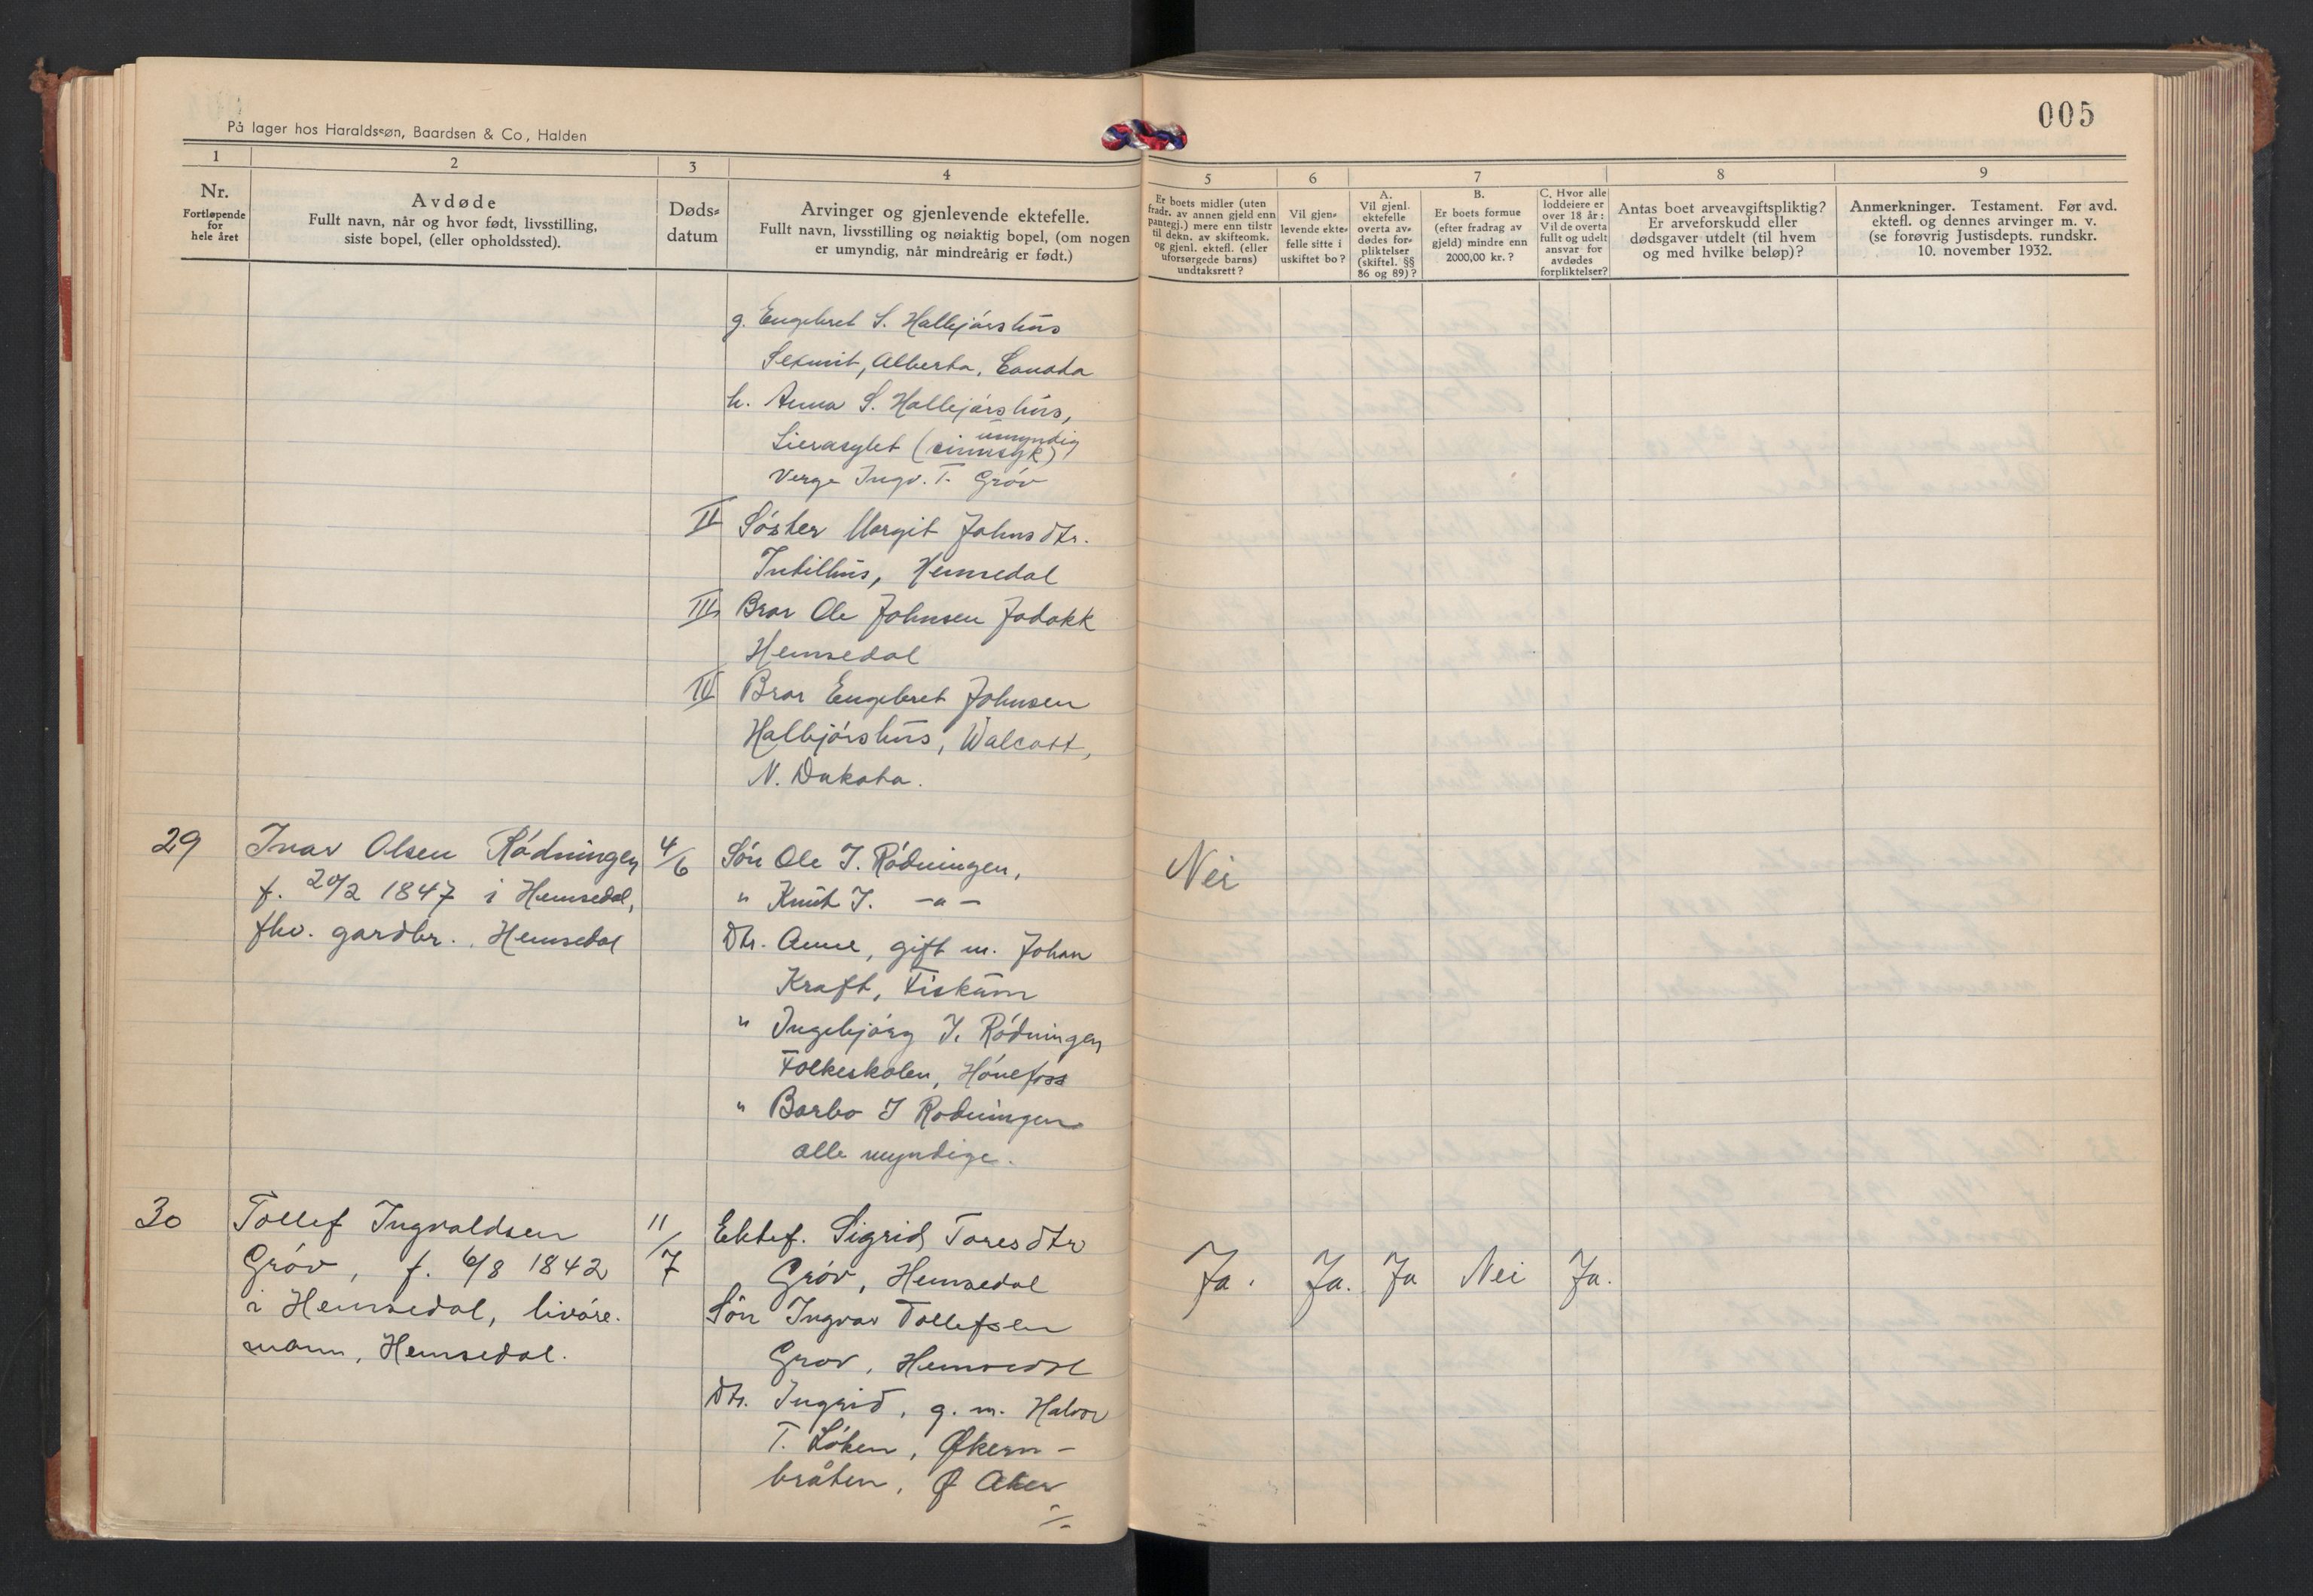 005
På lager hos Haraldssøn, Baardsen & Co, Halden
1
2
3
4
5
6
7
8
9
Nr.
Fortløpende
for
hele året
Avdøde
Fullt navn, når og hvor født, livsstilling,
siste bopel, (eller opholdssted).
Døds-
datum
Arvinger og gjenlevende ektefelle.
Fullt navn, livsstilling og nøiaktig bopel, (om nogen
er umyndig, når mindreårig er født.)
Er boets midler (uten
fradr. av annen gjeld enn
pantegj.) mere enn tilstr
til dekn. av skifteomk.
og gjenl. ektefl. (eller
uforsørgede barns)
undtaksrett?
Vil gjen-
levende ekte-
felle sitte i
uskiftet bo?
A.
Vil gjenl.
ektefelle
overta av-
dødes for-
pliktelser
(skiftel. §§
86 og 89)?
B.
Er boets formue
(efter fradrag av
gjeld) mindre enn
2000,00 kr.?
C. Hvor alle
loddeiere er
over 18 år:
Vil de overta
fullt og udelt
ansvar for
avdødes
forpliktelser?
Antas boet arveavgiftspliktig?
Er arveforskudd eller
dødsgaver utdelt (til hvem
og med hvilke beløp)?
Anmerkninger. Testament. Før avd.
ektefl. og dennes arvinger m. v.
(se forøvrig Justisdepts. rundskr.
10. november 1932.
g. Engebret S. Halbjórshus
Sexmit, Alberta, Canada
h. Anna S. Halbjórshus,
umyndig
Lierasylet (sinnsyk)
Verge Ingv. T. Gróv
II Sóster Margit Johnsdtr.
Intilhus, Hemsedal
III Bror Ole Johnsen Jodokk
Hemsedal
IV Bror Engebret Johnsen
Halbjórshus, Walcott,
N. Dakota.
29 Ivar Olsen Ródningen 4/6 Són Ole I. Ródningen, Nei
f. 20/2 1847 i Hemsedal, " Knut I. -"-
fhv. gardbr., Hemsedal Dtr. Anne, gift m. Johan
Kraft, Fiskum
" Ingebjórg I. Ródningen
Folkeskolen, Hónefoss
" Barbo I Rodningen
alle myndige.
30 Tollef Ingvaldsen 11/7 Ektef. Sigrid Toresdtr
Gróv, f. 6/8 1842 Gróv, Hemsedal Ja. Ja. Ja Nei Ja.
i Hemsedal, livóre- Són Ingvar Tollefsen
mann, Hemsedal. Grov, Hemsedal
Dtr. Ingrid, g. m. Halvor
T. Lóken, Økern-
bråten, Ø Aker